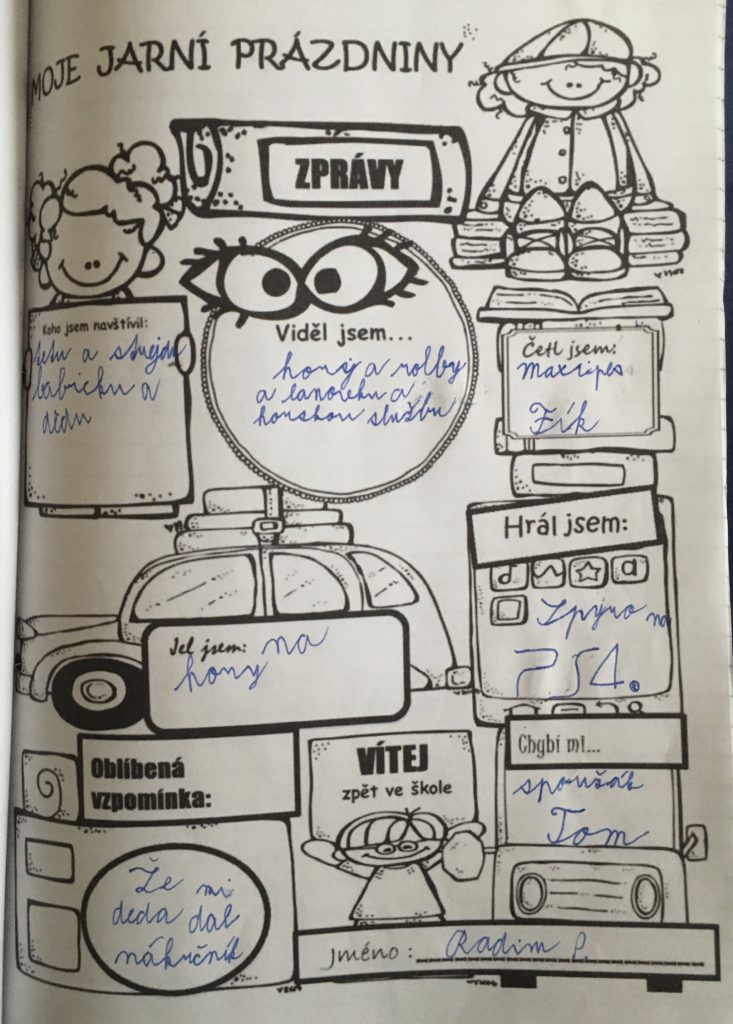 MOJE JARNÍ PRÁZDNINY
ZPRÁVY
Koho jsem navštívil:
tetu a strejdu
babičku a
dědu
Viděl jsem...
hory a rolby
a lanovku a
horskou službu
Četl jsem:
Maxipes
Fík
Hrál jsem:
Spyro na
PS4.
Jel jsem: na
hory
Oblíbená
vzpomínka:
Že mi
deda dal
nákrčník
VÍTEJ
zpět ve škole
Chybí mi...
spolužák
Tom
Jméno: Radim P.